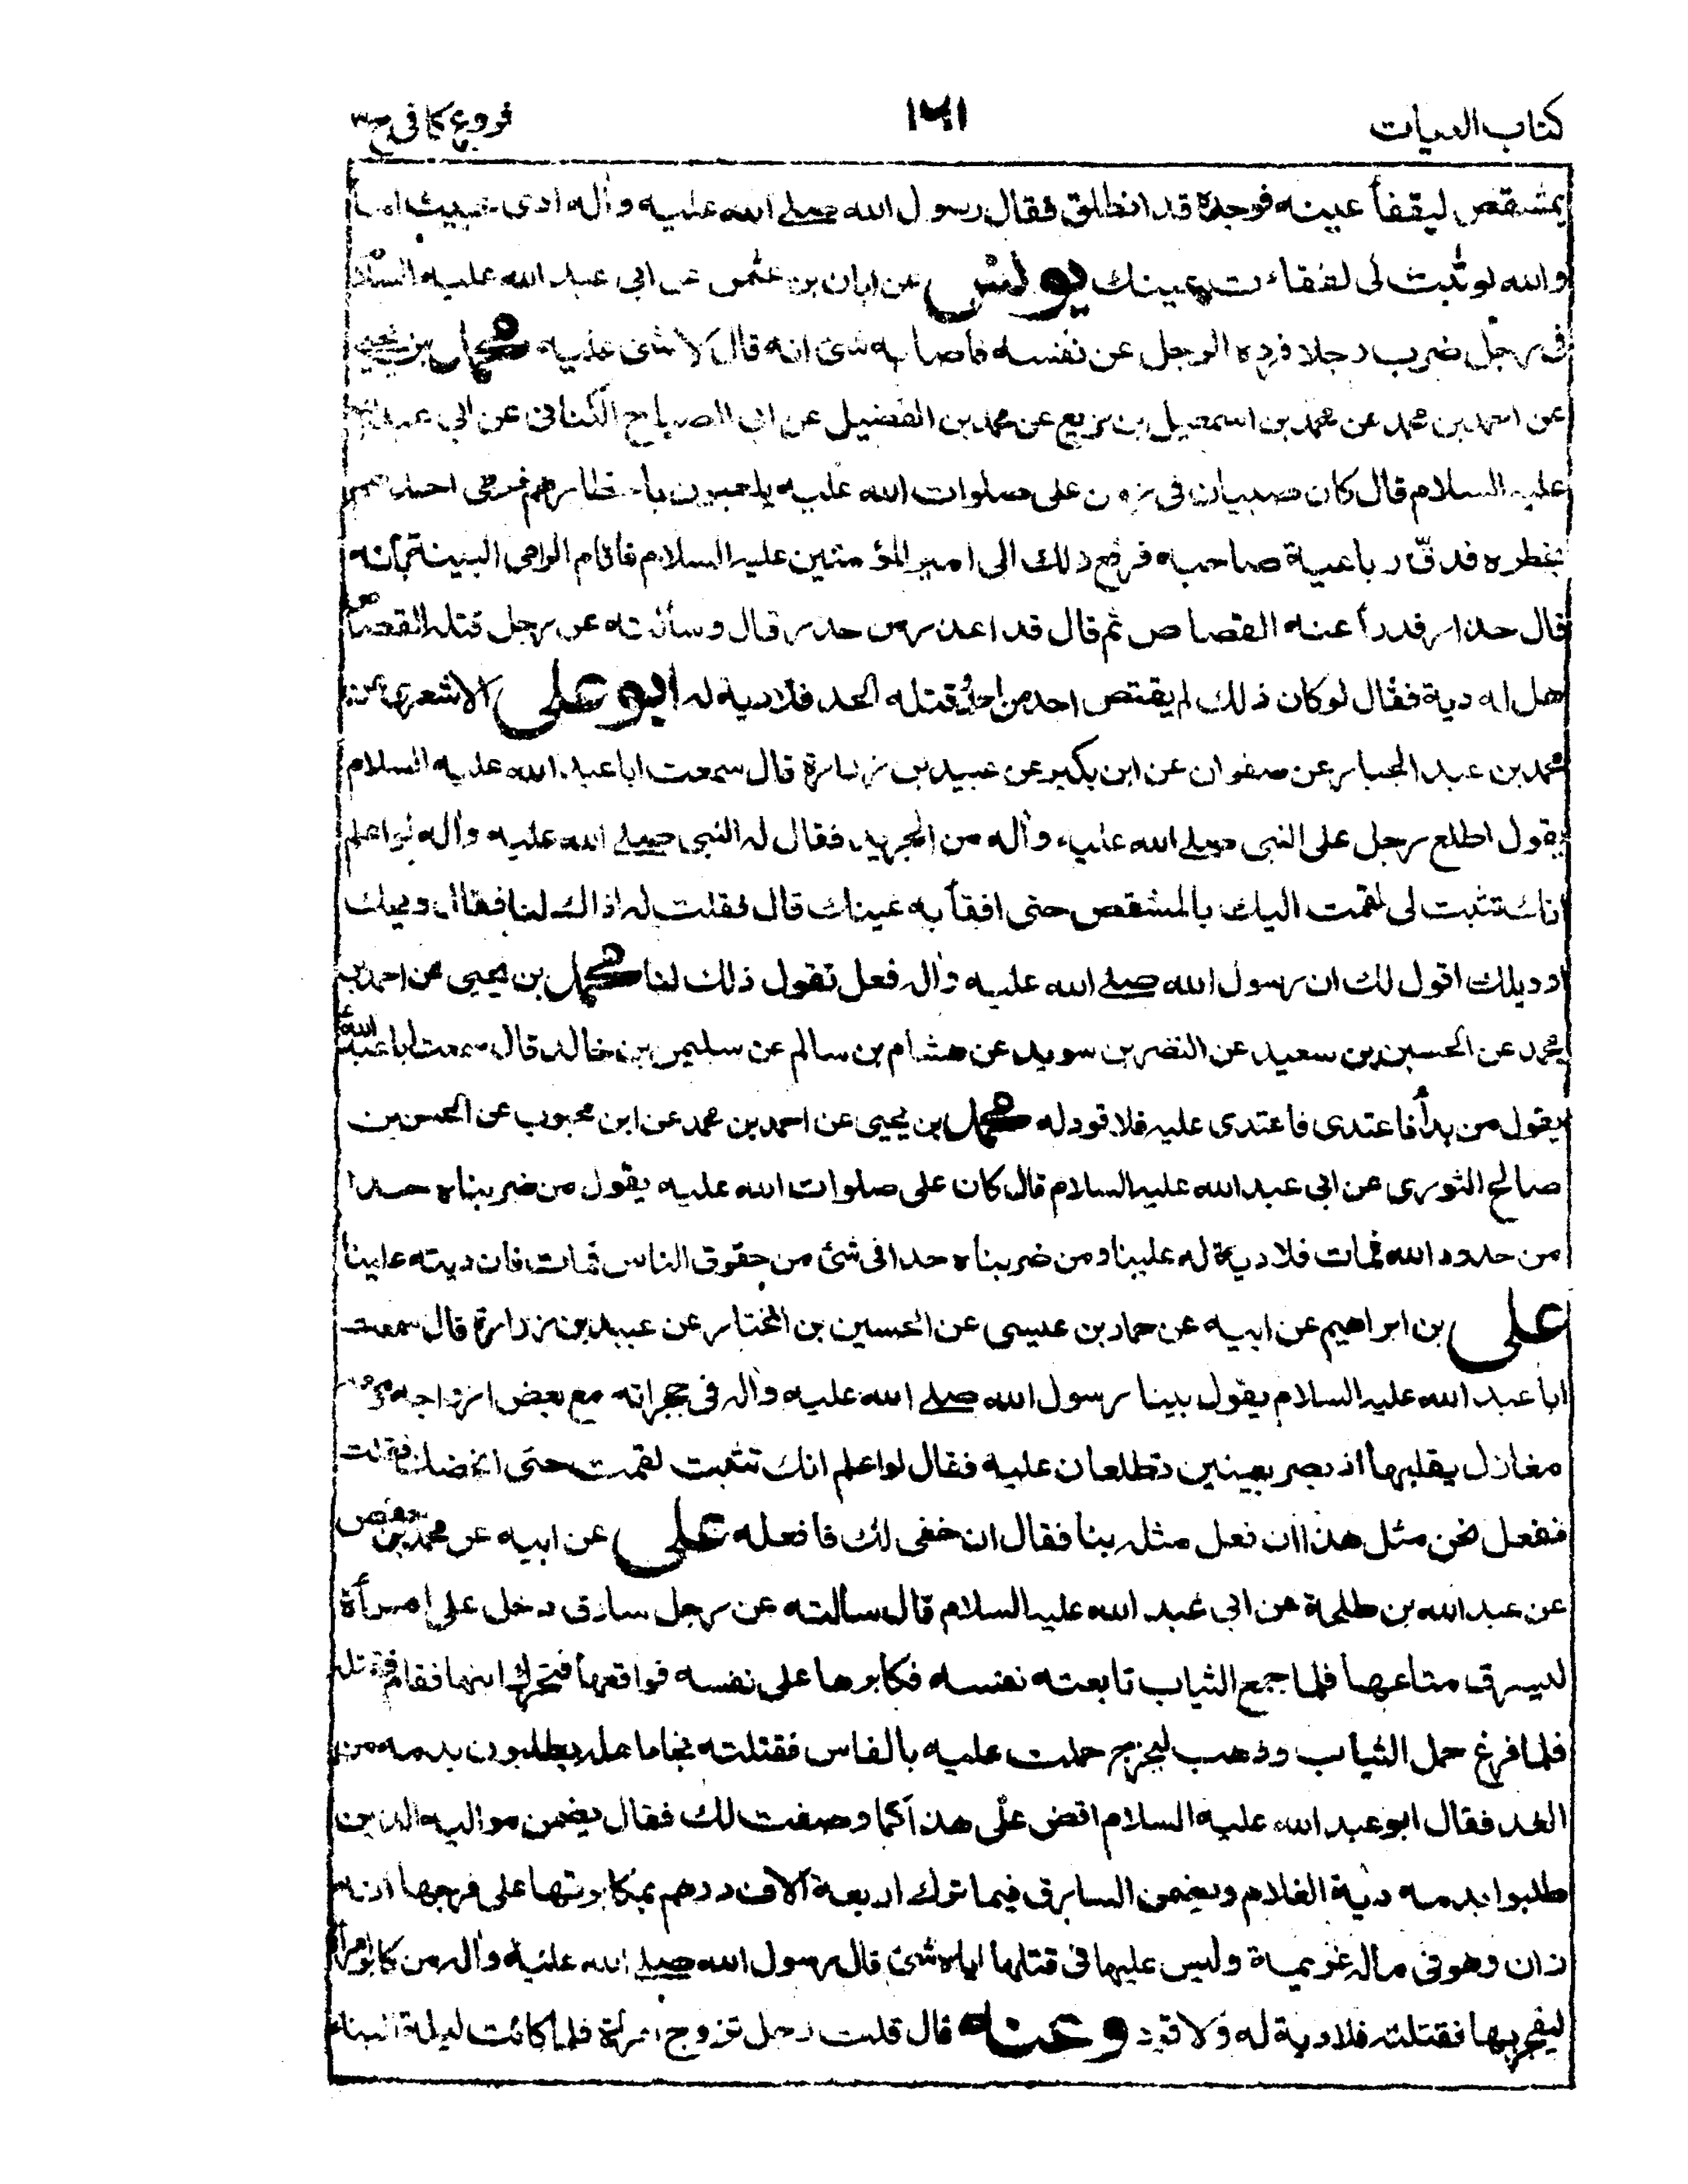 كتاب الديات ١٦١ فروع كافى ج٣
بمشقص ليفقأ عينه فوجده قد انطلق فقال رسول الله صلے الله عليه وآله ادى خبيث اما
والله لو ثبت لى لفقاءت عينك يونس عن ابان بن عثمن عن ابى عبد الله عليه السلام
فى رجل ضرب رجلا فرده الرجل عن نفسه فاصابه شئ انه قال لا شئ عليه محمد بن يحيى
عن احمد بن محمد عن محمد بن اسمعيل بن بزيع عن محمد بن الفضيل عن ابى الصباح الكنانى عن ابى عبد الله
عليه السلام قال كان صبيان فى زمن على صلوات الله عليه يلعبون باخطارهم فرمى احدهم
بخطره فدقّ رباعية صاحبه فرفع ذلك الى امير المؤمنين عليه السلام فاقام الرامى البينة بأنه
قال حذار فدرأ عنه القصاص ثم قال قد اعذر من حذر قال وسألته عن رجل قتله القصاص
هل له دية فقال لو كان ذلك لم يقتص احد من احد ومن قتله الحد فلا دية له ابو على الاشعرى عن
محمد بن عبد الجبار عن صفوان عن ابن بكير عن عبيد بن زرارة قال سمعت ابا عبد الله عليه السلام
يقول اطلع رجل على النبى صلے الله عليه وآله من الجريد فقال له النبى صلے الله عليه وآله لو اعلم
انك تثبت لى لقمت اليك بالمشقص حتى افقأ به عينك قال فقلت له اذاك لنا فقال ويحك
او ويلك اقول لك ان رسول الله صلے الله عليه وآله فعل تقول ذلك لنا محمد بن يحيى عن احمد بن
محمد عن الحسين بن سعيد عن النضر بن سويد عن هشام بن سالم عن سليمن بن خالد قال سمعت ابا عبد الله ع
يقول من بدأ فاعتدى فاعتدى عليه فلا قود له محمد بن يحيى عن احمد بن محمد عن ابن محبوب عن الحسن بن
صالح الثورى عن ابى عبد الله عليه السلام قال كان على صلوات الله عليه يقول من ضربناه حدا
من حدود الله فمات فلا دية له علينا ومن ضربناه حدا فى شئ من حقوق الناس فمات فان ديته علينا
على بن ابراهيم عن ابيه عن حماد بن عيسى عن الحسين بن المختار عن عبيد بن زرارة قال سمعت
ابا عبد الله عليه السلام يقول بينا رسول الله صلے الله عليه وآله فى حجراته مع بعض ازواجه ومعه
مغازل يقلبها اذ بصر بعينين تطلعان عليه فقال لو اعلم انك تثبت لقمت حتى انخسك فقلت
نفعل نحن مثل هذا ان فعل مثله بنا فقال ان خفى لك فافعله على عن ابيه عن محمد بن حفص
عن عبد الله بن طلحة عن ابى عبد الله عليه السلام قال سالته عن رجل سارق دخل على امرأة
ليسرق متاعها فلما جمع الثياب تابعته نفسه فكابرها على نفسه فواقعها فتحرك ابنها فقام فقتله
فلما فرغ حمل الثياب وذهب ليخرج حملت عليه بالفاس فقتلته فجاء اهله يطلبون بدمه من
الغد فقال ابو عبد الله عليه السلام اقض على هذا كما وصفت لك فقال يضمن مواليه الذين
طلبوا بدمه دية الغلام ويضمن السارق فيما ترك اربعة آلاف درهم بمكابرتها على فرجها انه
زان وهو فى ماله غريمة وليس عليها فى قتلها اياه شئ قال رسول الله صلے الله عليه وآله من كابر امرأة
ليفجر بها فقتلته فلا دية له ولا قود وعنه قال قلت رجل تزوج امرأة فلما كانت ليلة البناء